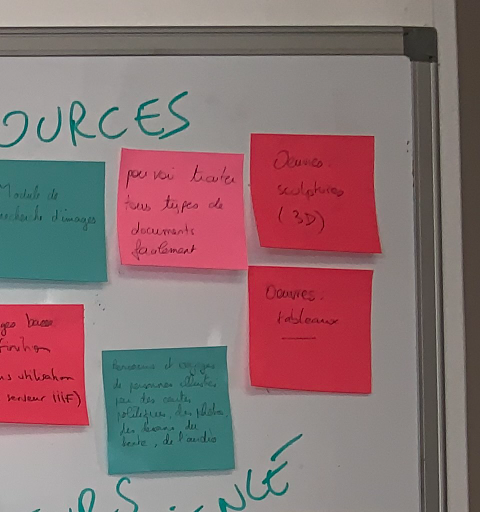 OURCES
Module de
recherche d'images
pouvoir traiter
tous types de
documents
facilement
Oeuvres :
sculptures
(3D)
Oeuvres :
tableaux
ges basse
finition
ns utilisation
serveur IIIF)
Parcours et voyages
de personnes illustres
par des cartes
politiques, des photos,
des dessins, du
texte, de l'audio